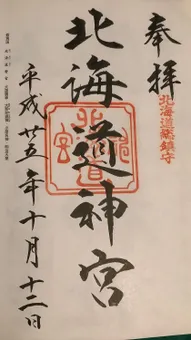 奉拝
北海道総鎮守
北海道神宮
平成廿五年十月十二日